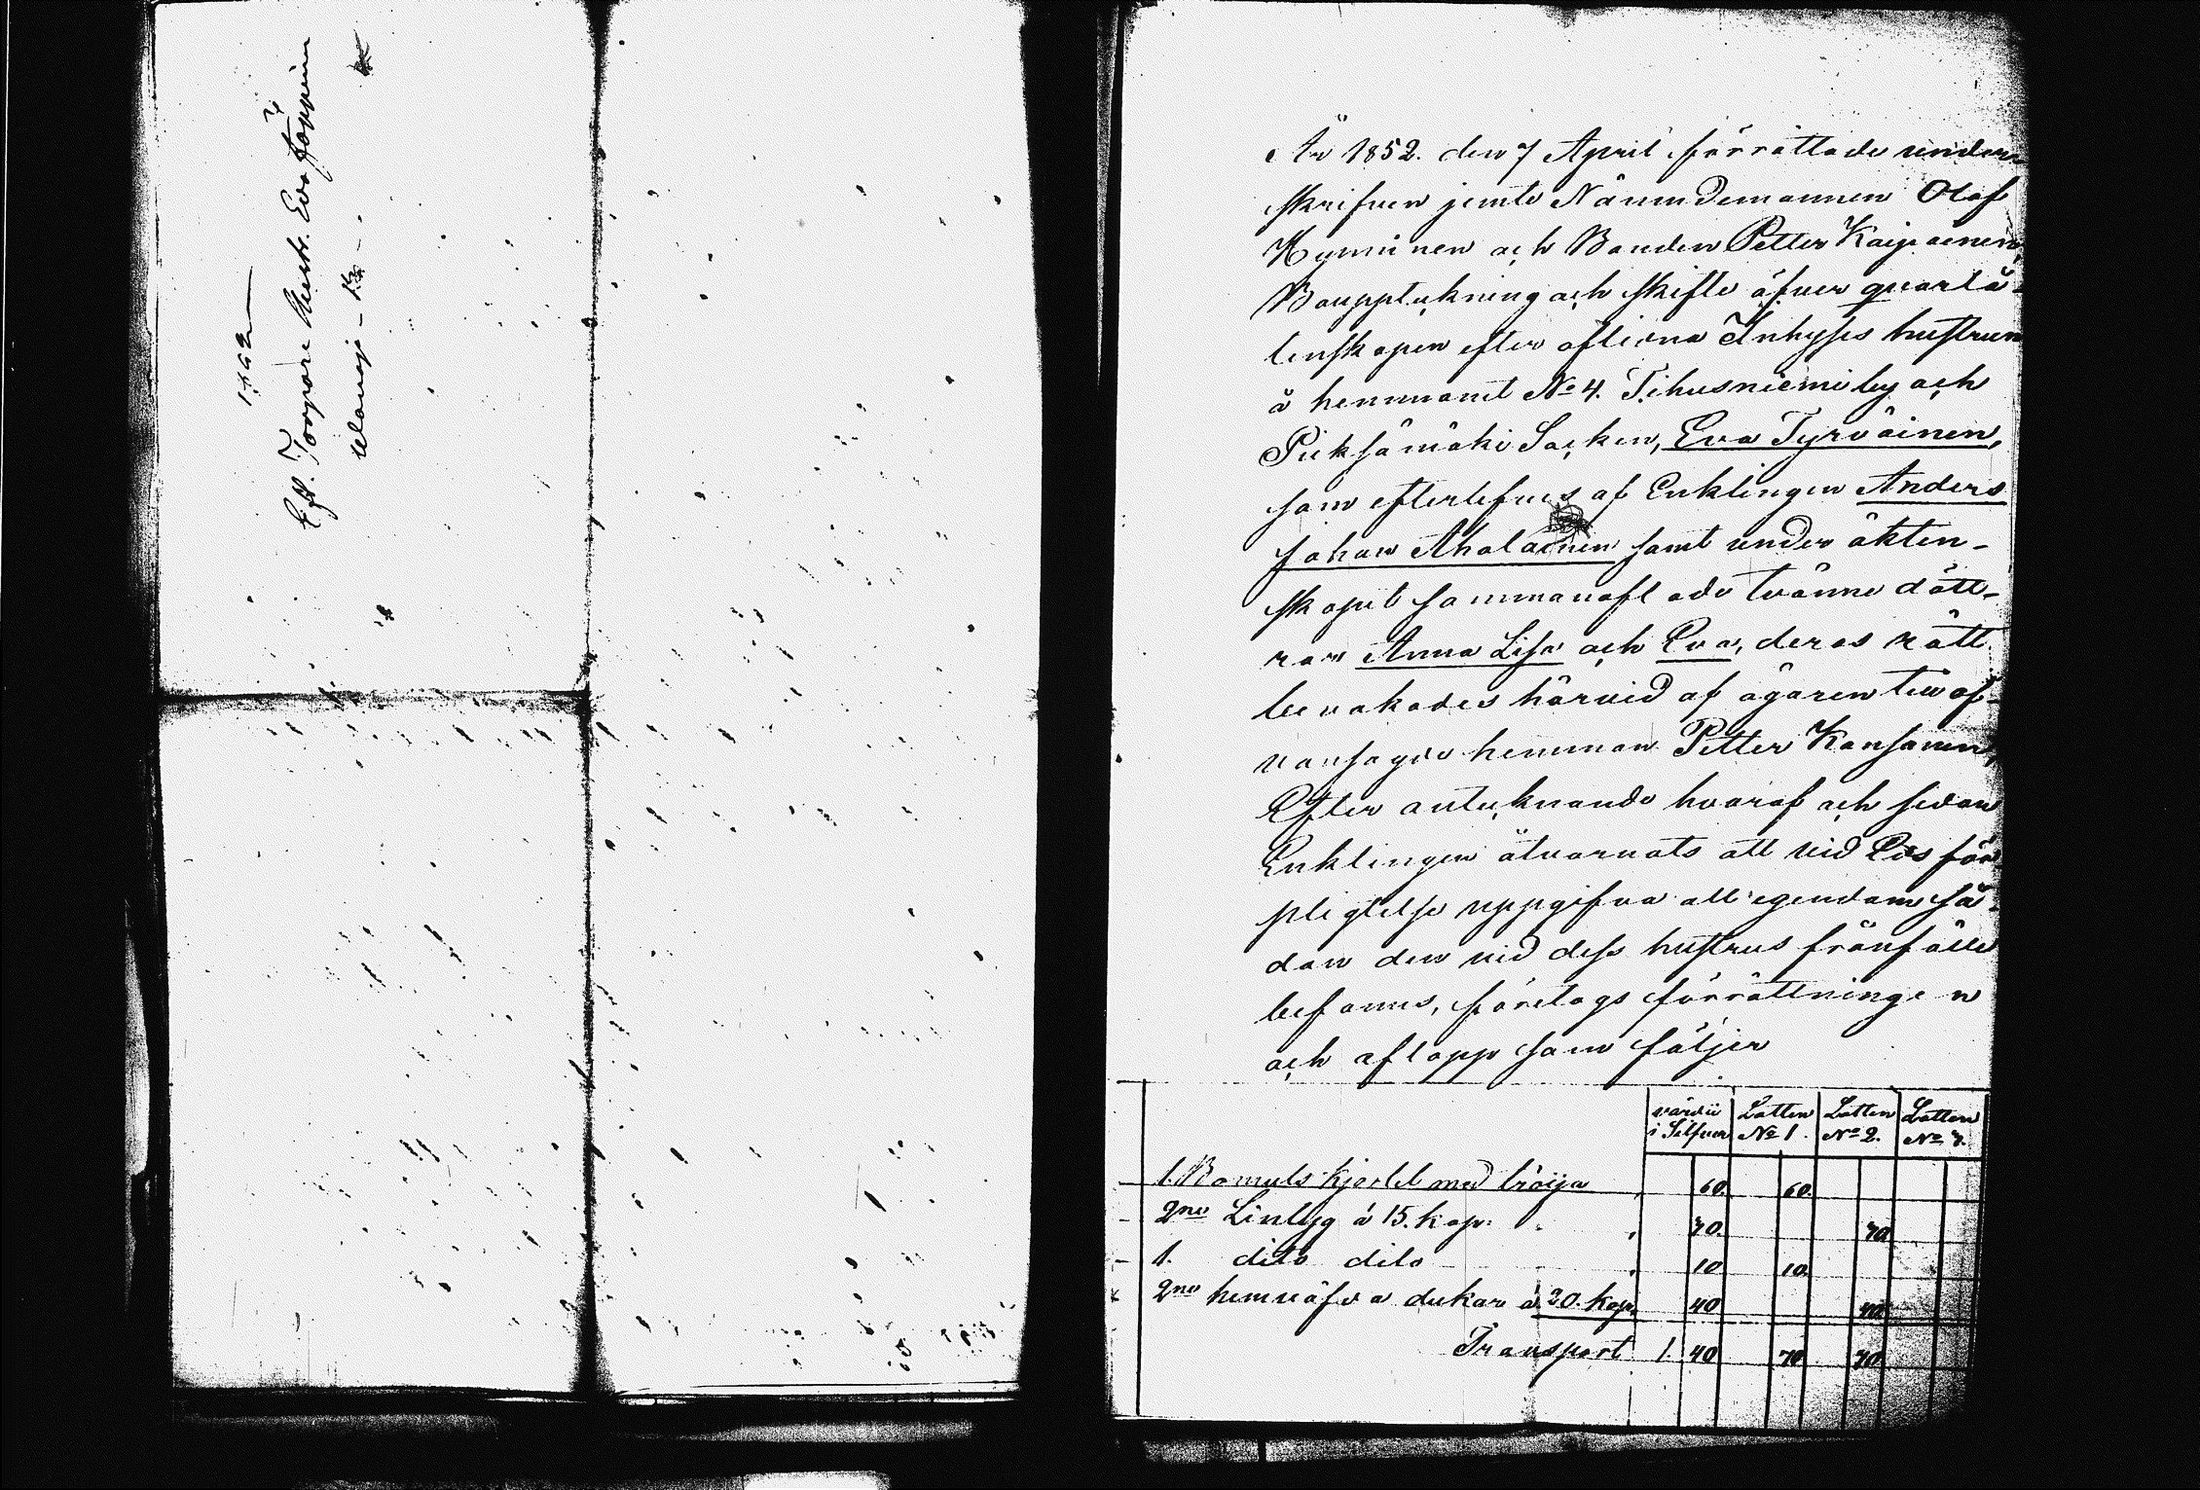 1852
Eft. Torpare Hustr. Eva
År 1852. den 7 April förrättade under-
skrifven jemte Nämndemannen Olof
Hyminen och Bonden Petter Kaipainen,
Bouppteckning och skifte öfver qvarlå-
tenskapen efter aflidna Inhyses hustrun
å hemmanet No 4. Tihusniemi by och
Pieksämäki Socken, Eva Tyrväinen,
som efterlefves af Enklingen Anders
Johan Aholainen samt under äkten-
skapet sammanaflade tvänne dött-
rar Anna Lisa och Eva, deras rätt
bevakades härvid af ägaren till of-
vansagde hemman Petter Kansanen,
Efter antecknande hvaraf och sedan
Enklingen åtvarnats att vid Eds för
pligtelse uppgifva all egendom så-
dan den vid dess hustrus frånfälle
befanns, företogs förrättningen
och aflopp som följer
värde i Silfver Lotten No 1. Lotten No 2. Lotten No 3.
1. Bomuls Kjortel med tröija 60. 60.
2ne Lintyg á 15. kop: 30. 30
1. dito dito 10 10.
2ne hemväfda dukar á 20. Kop. 40 40.
Transport 1. 40 70 70.